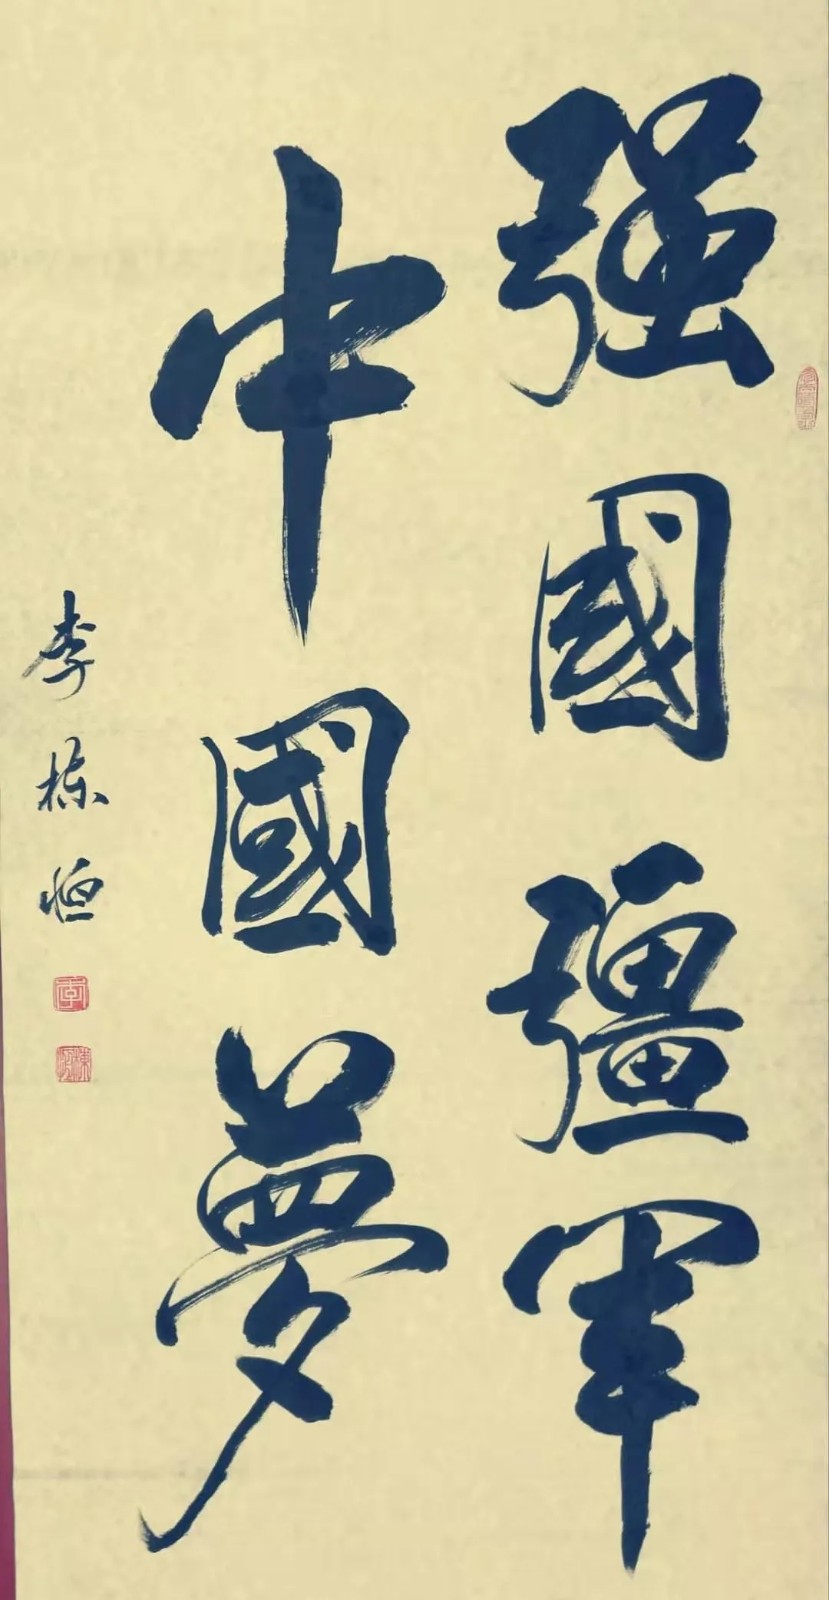 强國彊軍
中國夢
李栋恒